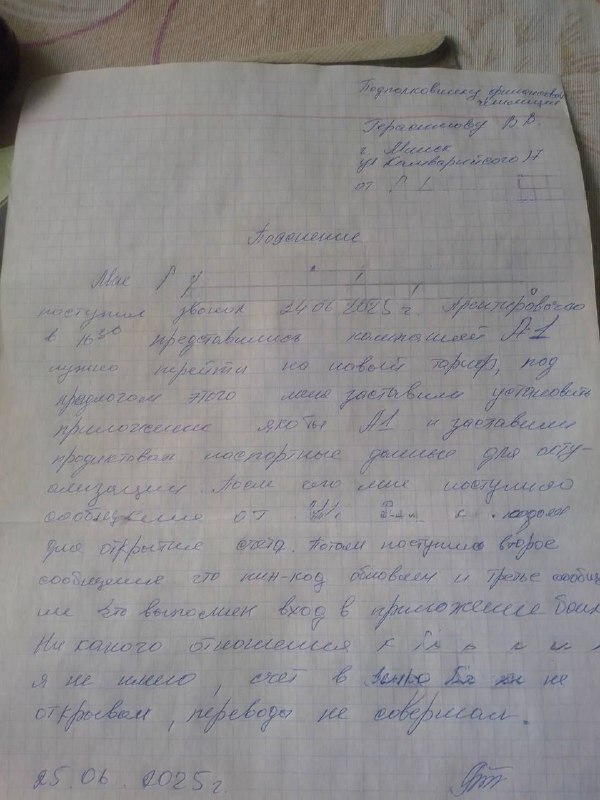 Подполковнику
милиции
Герасимову В.В.
г. Минск
ул Кальварийского 17
от
Пояснение
Мне
поступил звонок 24.06 2025 г.
в 16 30 представились компанией А1
нужно перейти на новый тариф, под
предлогом этого меня заставили установить
приложение якобы А1 и заставили
продиктовал паспортные данные для акту-
ализации. После чего мне поступило
сообщение от кодом
для открытие счета. Потом поступило второе
сообщение что пин-код обновлен и третье сообще
ние что выполнен вход в приложение банк
Ни какого отношения к
я не имею, счет в не
открывал, переводы не совершал.
25.06.2025г